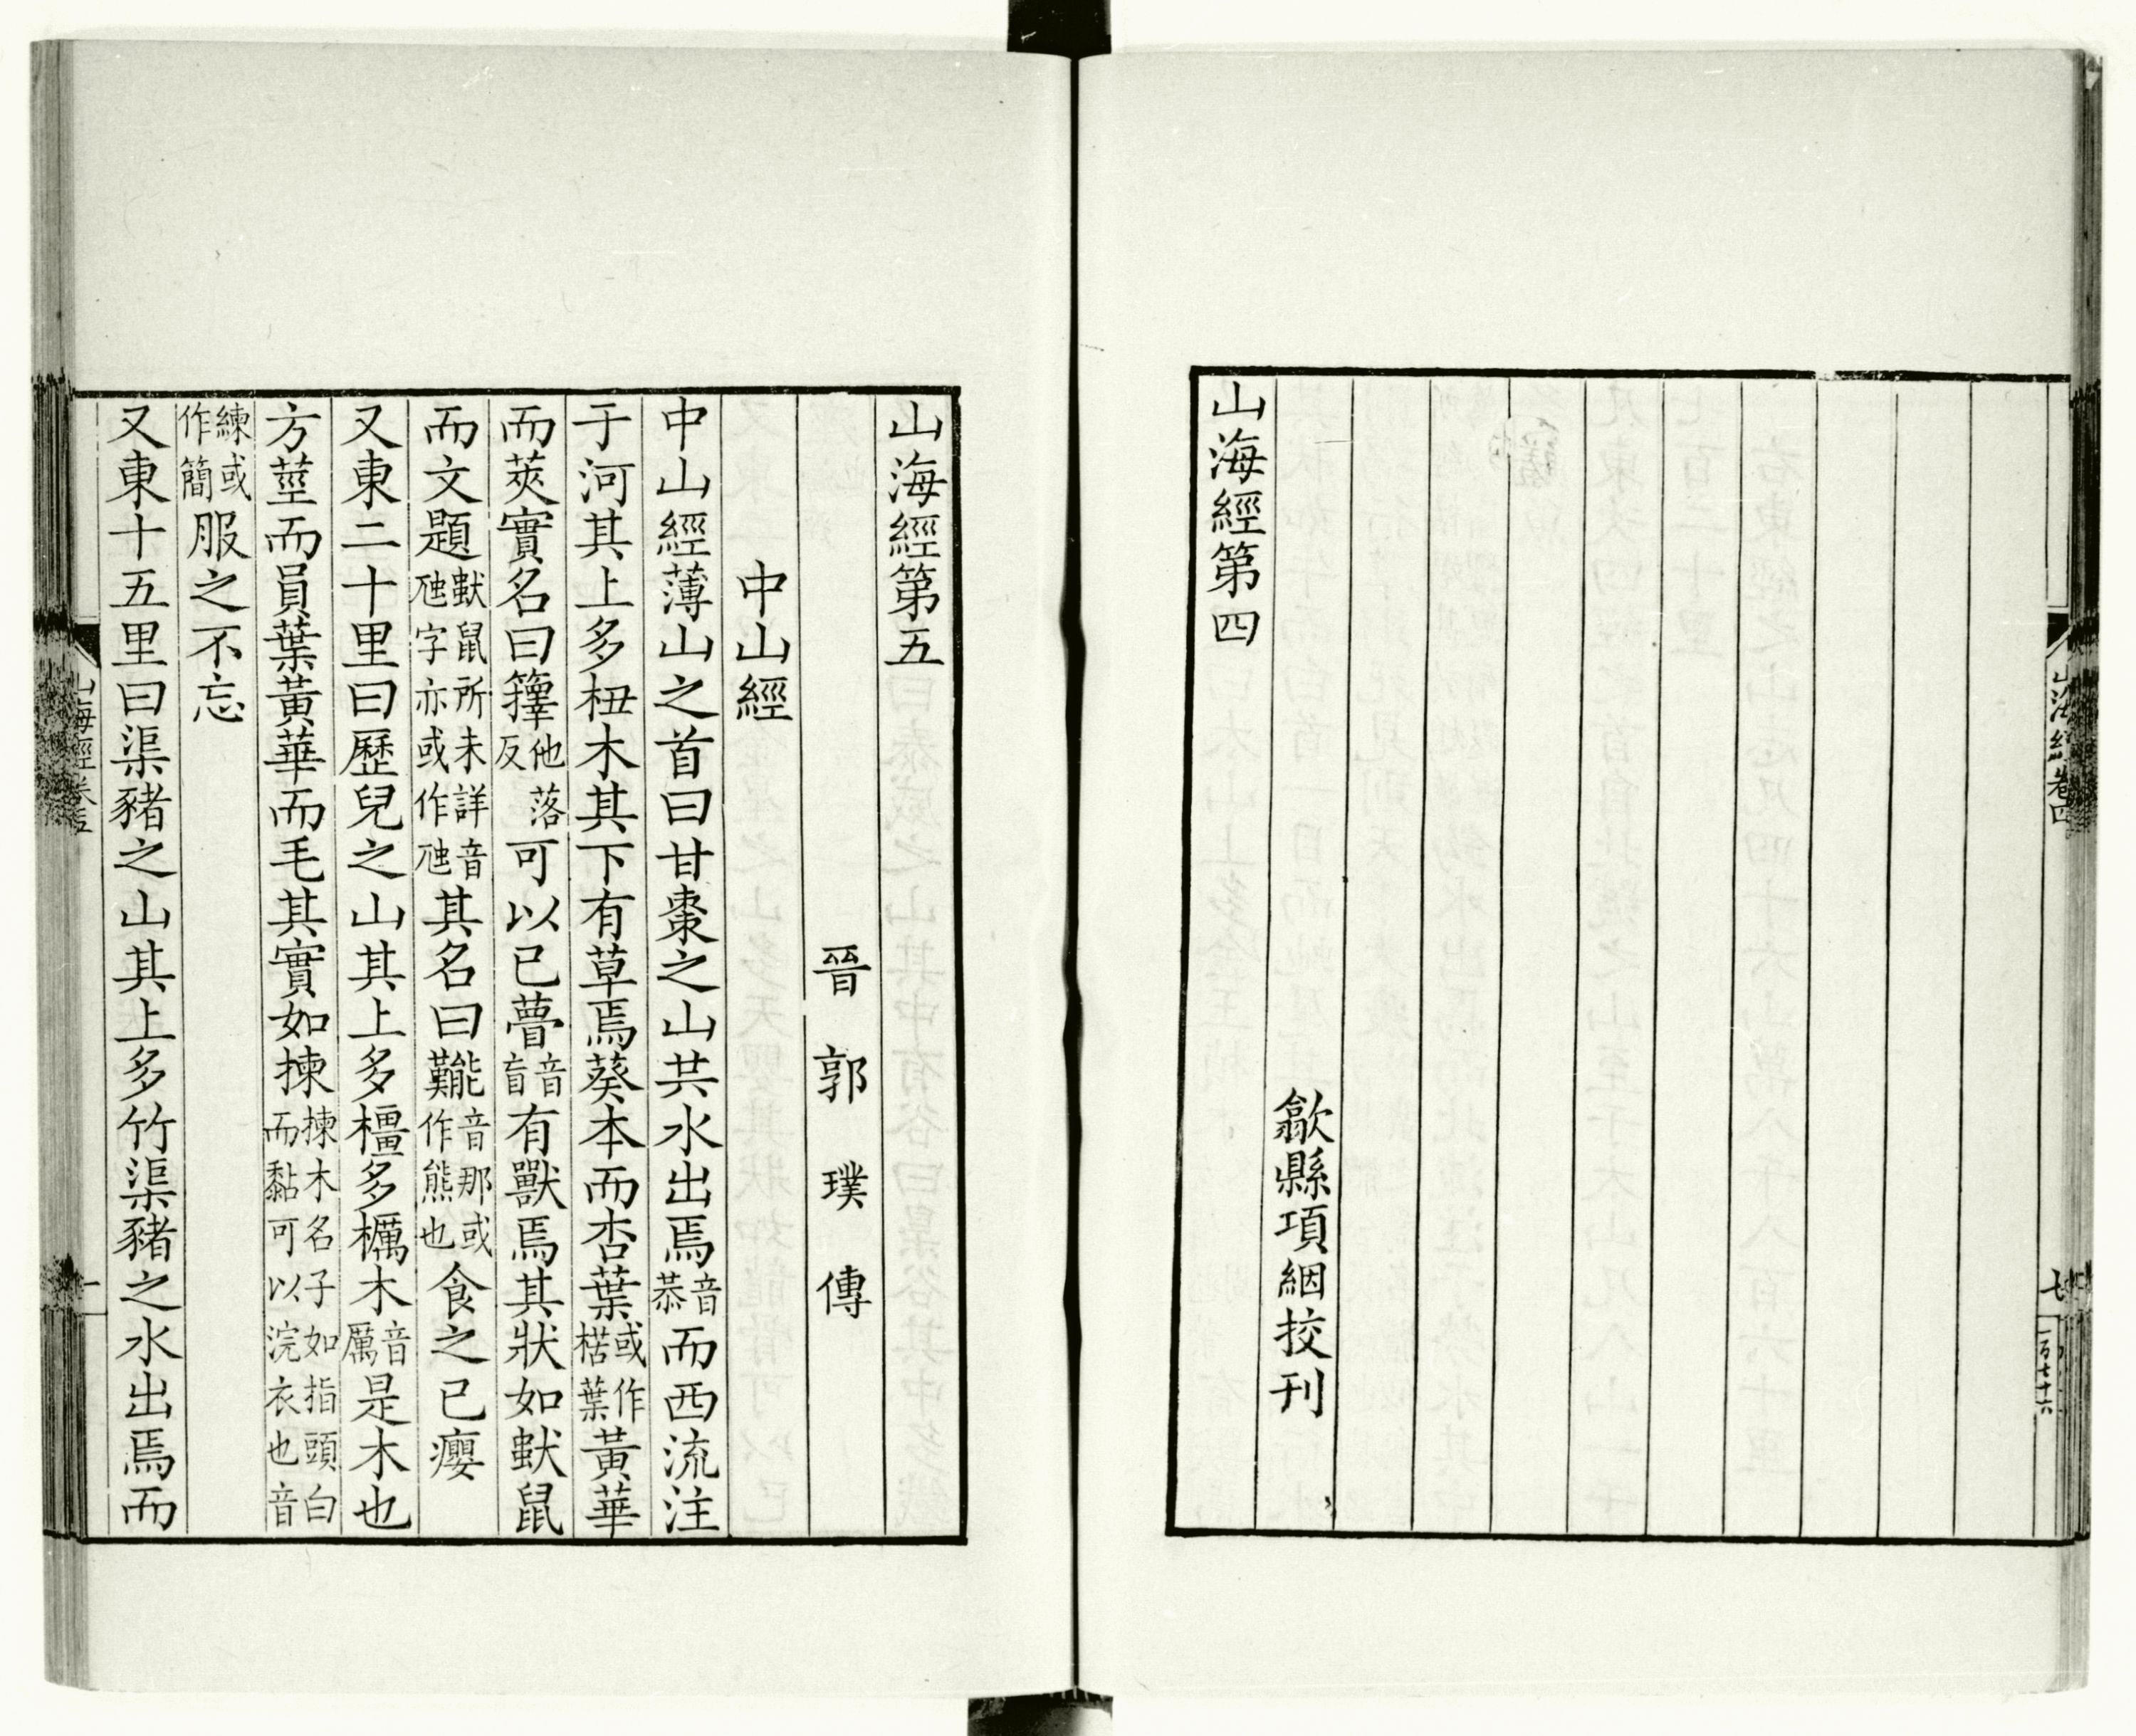 歙縣項絪挍刊
山海經第四
山海經卷四
七
一百七十六
山海經第五
晉 郭 璞 傳
中山經
中山經薄山之首曰甘棗之山共水出焉音恭而西流注
于河其上多杻木其下有草焉葵本而杏葉或作楛葉黃華
而莢實名曰籜他落反可以已瞢音盲有獸焉其狀如䶂鼠
而文題䶂鼠所未詳音虺字亦或作虺其名曰㔮音那或作熊也食之已癭
又東二十里曰歷兒之山其上多橿多櫔木音厲是木也
方莖而員葉黃華而毛其實如揀揀木名子如指頭白而黏可以浣衣也音
練或作簡服之不忘
又東十五里曰渠豬之山其上多竹渠豬之水出焉而
山海經卷五
一